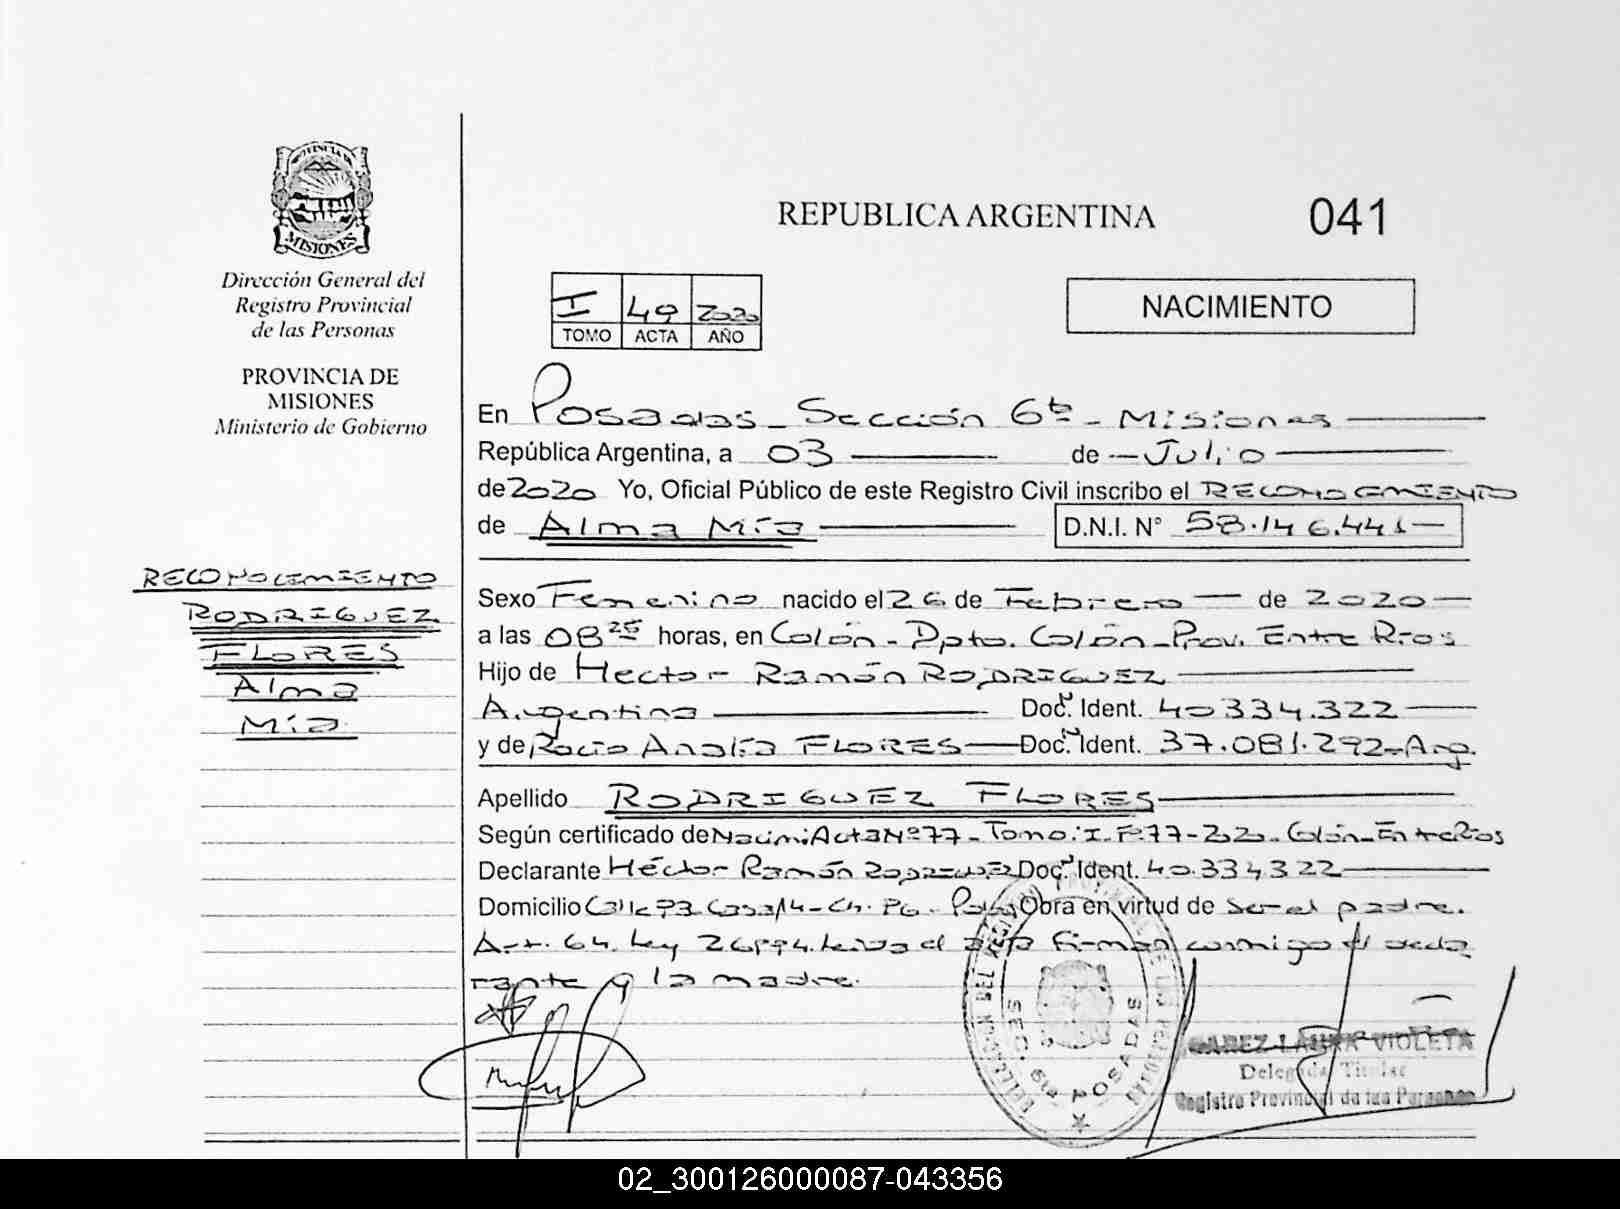 PROVINCIA DE
MISIONES
Dirección General del
Registro Provincial
de las Personas
PROVINCIA DE
MISIONES
Ministerio de Gobierno
REPUBLICA ARGENTINA
041
I 49 2020
TOMO ACTA AÑO
NACIMIENTO
En Posadas - Sección 6ta - Misiones
República Argentina, a 03 de Julio
de 2020 Yo, Oficial Público de este Registro Civil inscribo el RECONOCIMIENTO
de Alma Mía D.N.I. N° 58.146.441
RECONOCIMIENTO
RODRIGUEZ
FLORES
Alma
Mía
Sexo Femenino nacido el 26 de Febrero de 2020
a las 08 25 horas, en Colón - Dpto. Colón - Prov. Entre Ríos
Hijo de Hector Ramón RODRIGUEZ
Argentina Doc. Ident. 40334.322
y de Rocío Analía FLORES Doc. Ident. 37.081.292 - Arg.
Apellido RODRIGUEZ FLORES
Según certificado de Nacimi Acta Nº 77 - Tomo: I. Fº 77 - 2020 - Colón - Entre Ríos
Declarante Héctor Ramón RODRIGUEZ Doc. Ident. 40.334322
Domicilio Calle 93 Casa 14 - Ch. Obra en virtud de ser el padre.
Art. 64. Ley 26994. leída el acta firman conmigo el decla
rante y la madre.
SEC. 6ta POSADAS
LAURA VIOLETA
Delegada Titular
Registro Provincial de las Personas
02_300126000087-043356